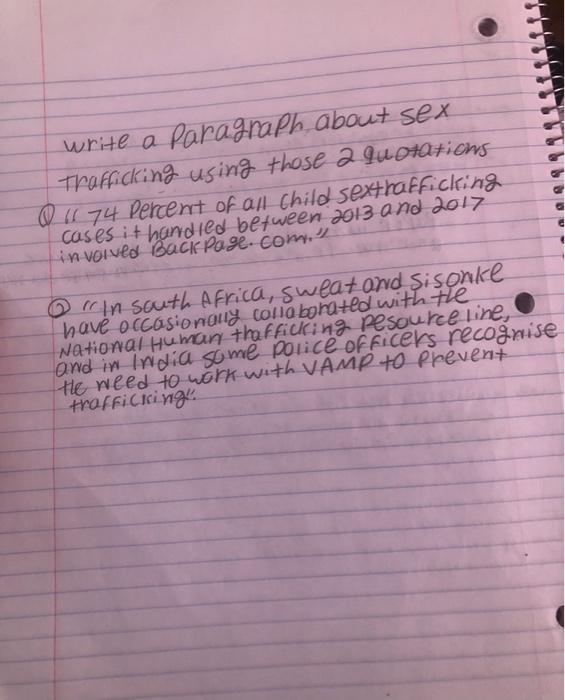 write a Paragraph about sex
Trafficking using those 2 quotations
① "74 Percent of all child sextrafficking
cases it handled between 2013 and 2017
involved BackPage.com."
② "In south Africa, sweat and Sisonke
have occasionally collaborated with the
National Human trafficking resource line,
and in India some police officers recognise
the need to work with VAMP to Prevent
trafficking".